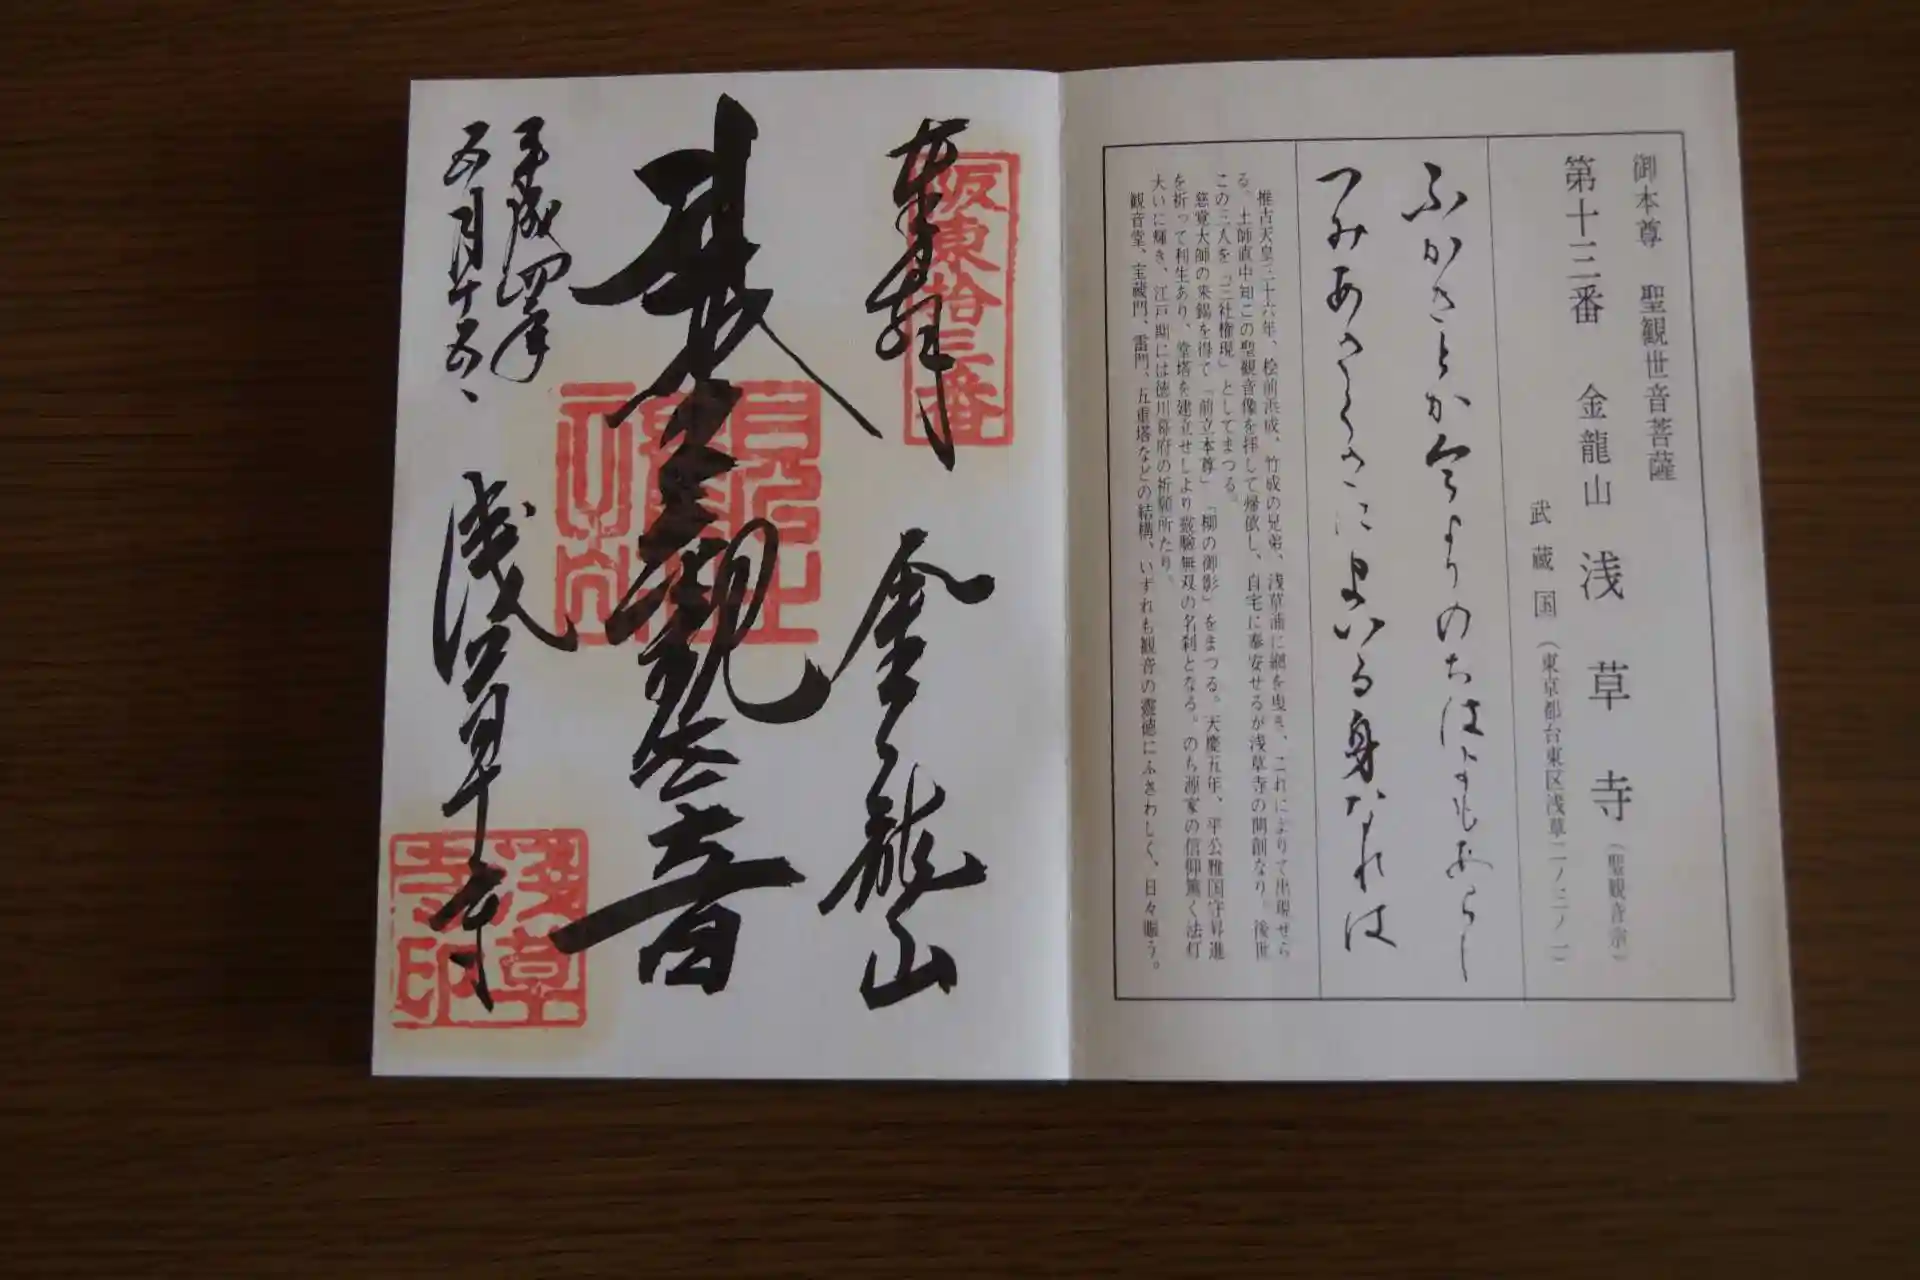 御本尊 聖観世音菩薩
第十三番 金龍山 浅草寺（聖観音宗）
武蔵国（東京都台東区浅草二ノ三ノ一）
ふかきとか今よりのちはよもあらし
つみあさくさにまいる身なれは
推古天皇三十六年、桧前浜成、竹成の兄弟、浅草浦に網を曳き、これによりて出現せら
る。土師直中知この聖観音像を拝して帰依し、自宅に奉安せるが浅草寺の開創なり。後世
この三人を「三社権現」としてまつる。
慈覚大師の来錫を得て「前立本尊」「柳の御影」をまつる。天慶五年、平公雅国守昇進
を祈って利生あり、堂塔を建立せしより霊験無双の名刹となる。のち源家の信仰篤く法灯
大いに輝き、江戸期には徳川幕府の祈願所たり。
観音堂、宝蔵門、雷門、五重塔などの結構、いずれも観音の霊徳にふさわしく、日々賑う。
奉拝 金龍山
阪東拾三番
聖観世音
平成四年
五月十五日
浅草寺
浅草寺印